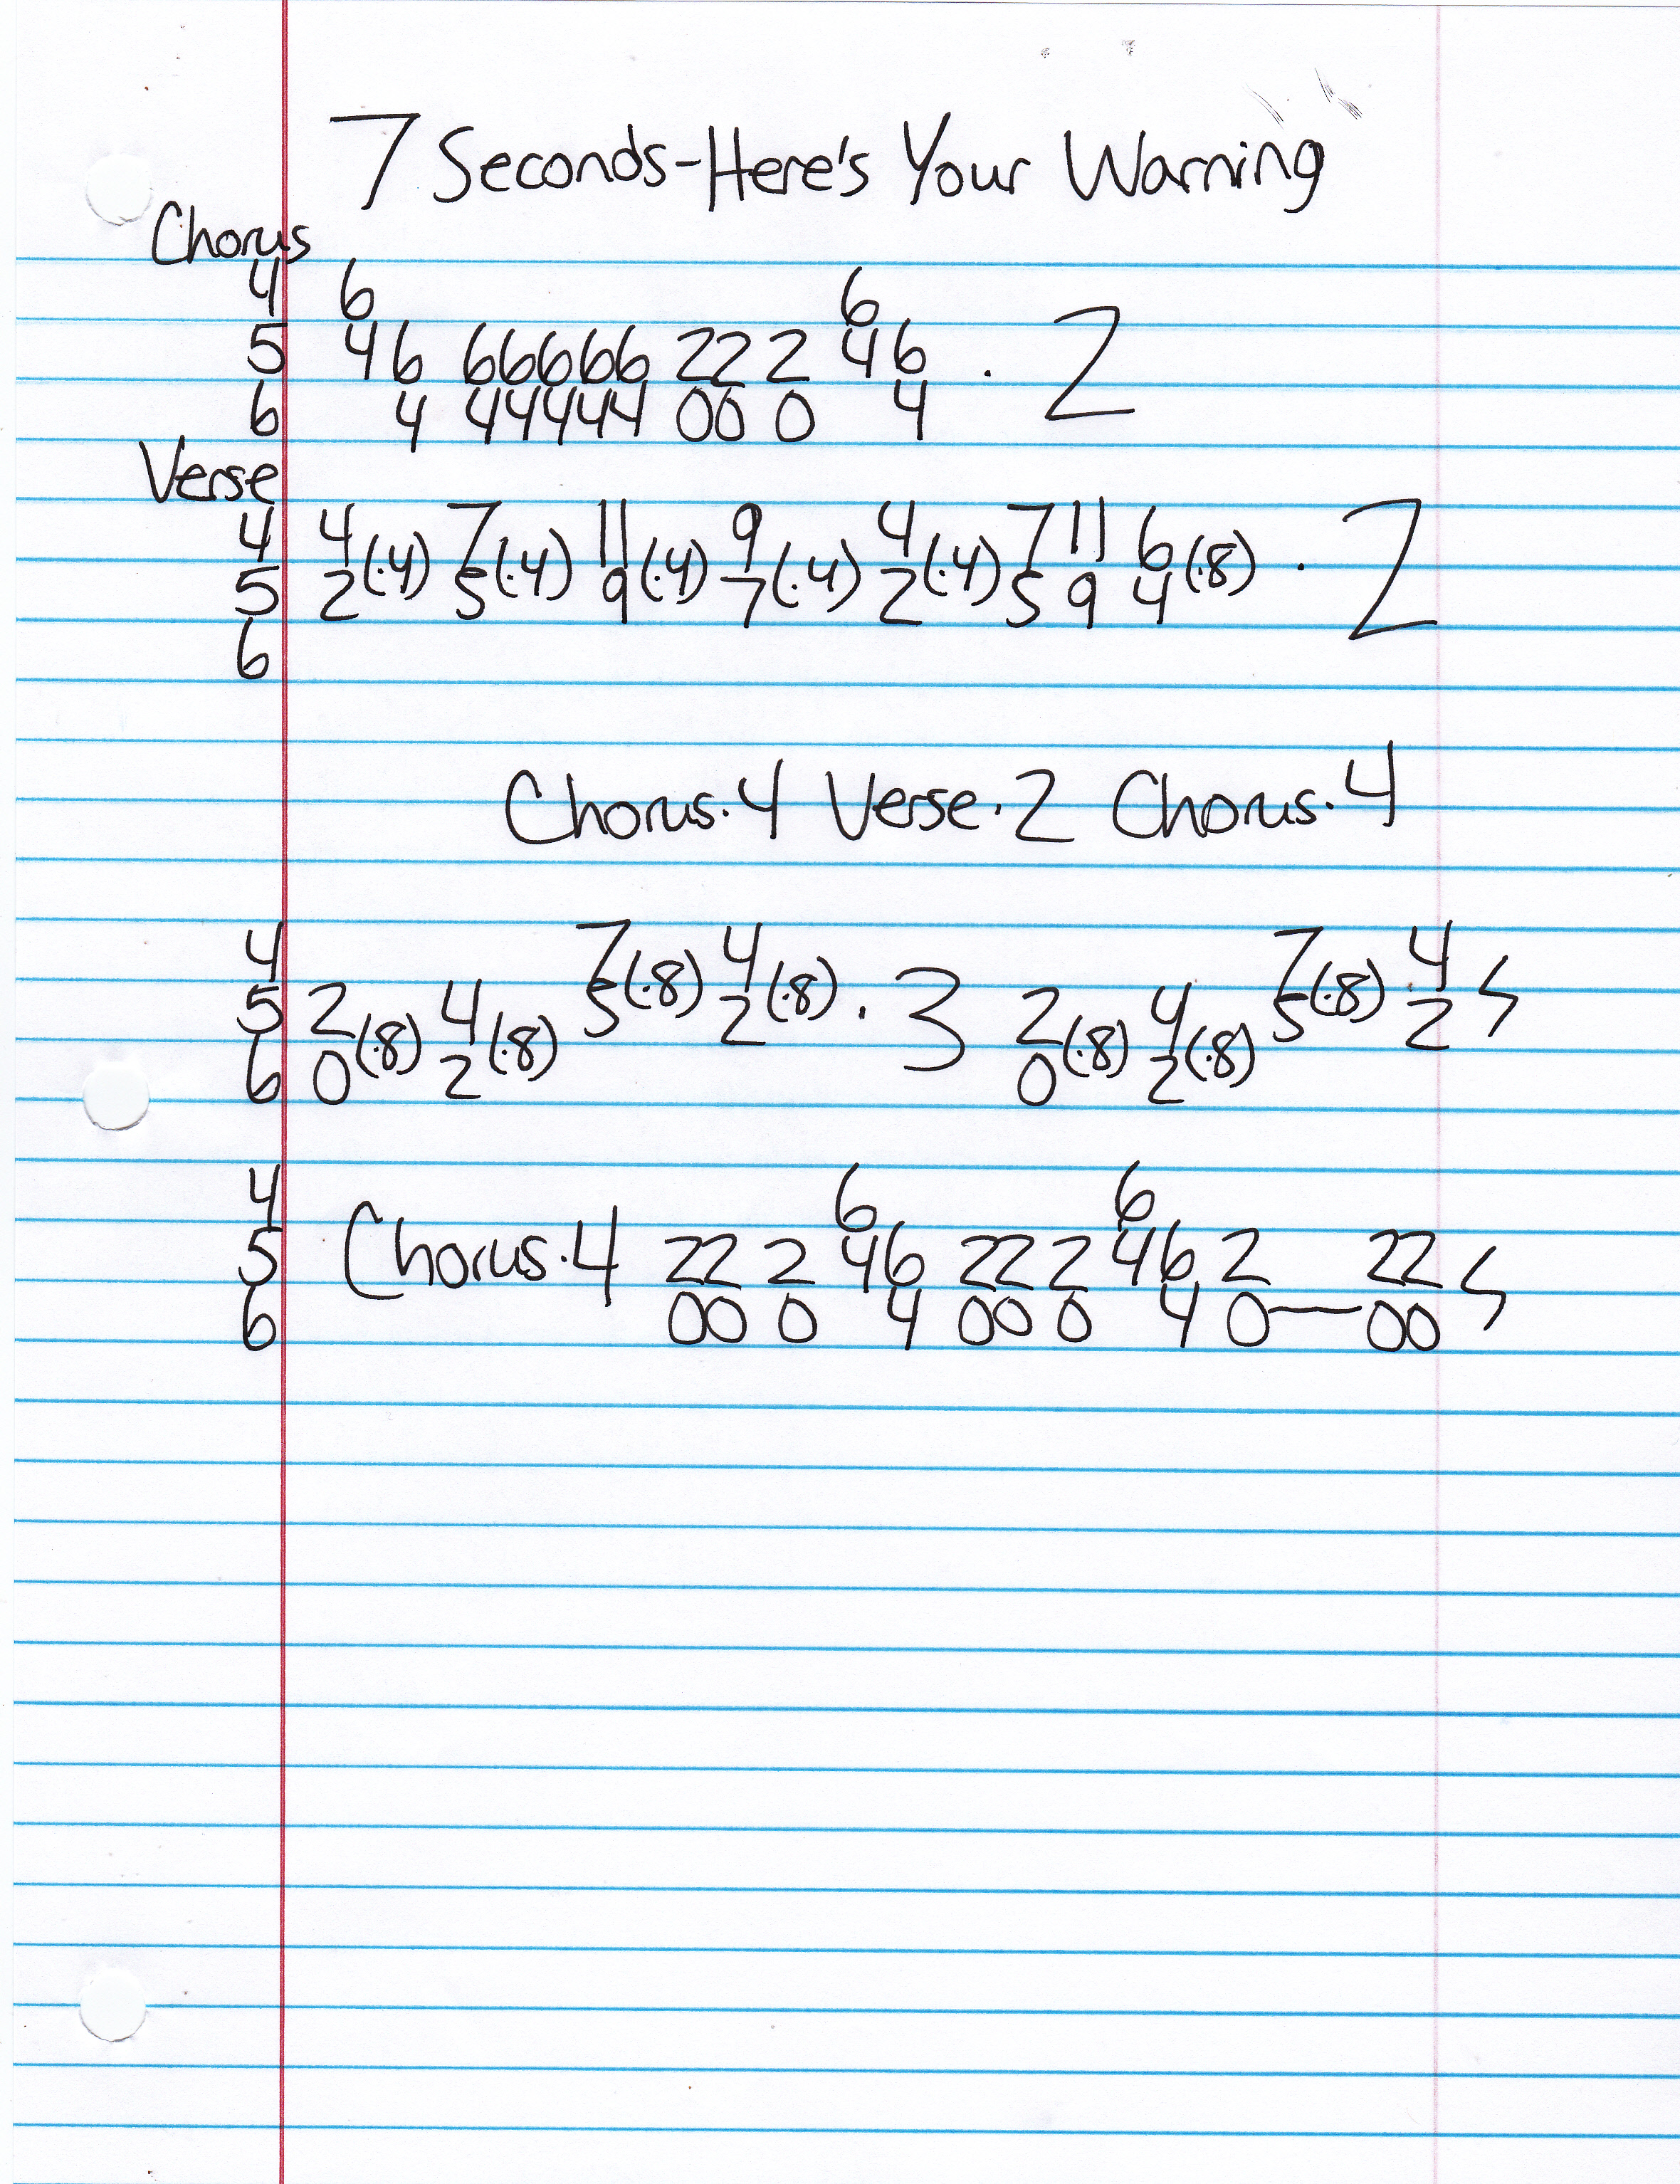 7 Seconds-Here's Your Warning
Chorus
4 6 6
5 46 66666 22 2 46 . 2
6 4 44444 00 0 4
Verse
4 4(·4) 7(·4) 11(·4) 9(·4) 4(·4) 7 11 6(·8) . 2
5 2 5 9 7 2 5 9 4
6
Chorus·4 Verse·2 Chorus·4
4 7(·8) 4(·8) 7(·8) 4
5 2(·8) 4(·8) 5 2 · 3 2(·8) 4(·8) 5 2
6 0 2 0 2
4 6 6
5 Chorus·4 22 2 46 22 2 46 2 22
6 00 0 4 00 0 4 0—00